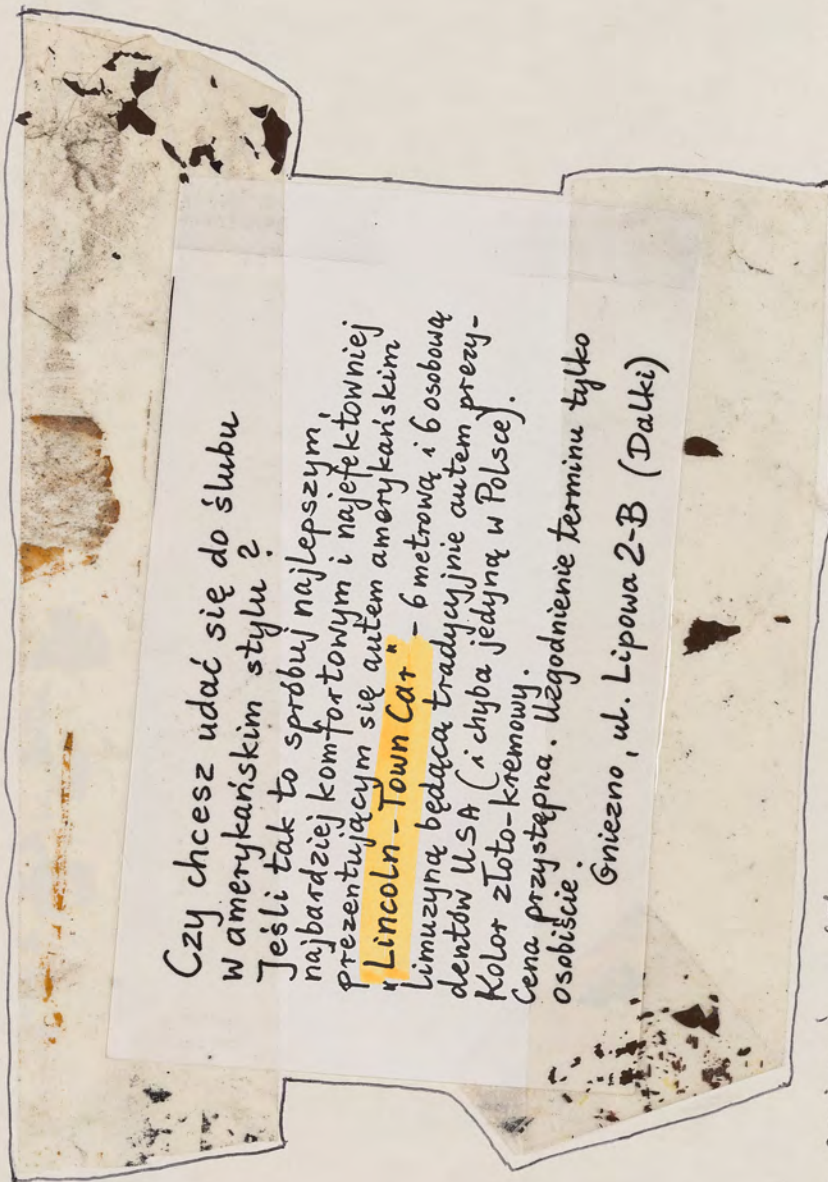 Czy chcesz udać się do ślubu
w amerykańskim stylu?
Jeśli tak to spróbuj najlepszym,
najbardziej komfortowym i najefektowniej
prezentującym się autem amerykańskim
"Lincoln - Town Car" - 6 metrową i 6 osobową
limuzyną będącą tradycyjnie autem prezy-
dentów USA (i chyba jedyną w Polsce).
Kolor złoto-kremowy.
Cena przystępna. Uzgodnienie terminu tylko
osobiście.
Gniezno, ul. Lipowa 2-B (Dalki)